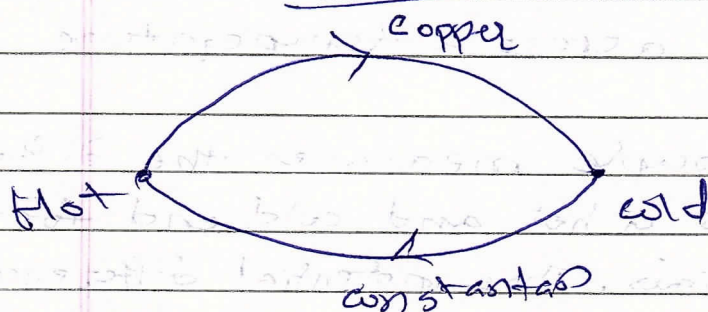 copper
Hot
cold
constantan